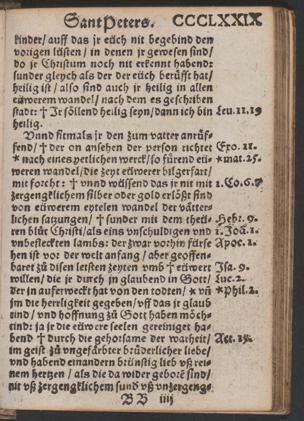 Sant Peters. CCCLXXIX
kinder/ auff das jr eüch nit begebind den
vorigen lüsten/ in denen jr gewesen sind/
do jr Christum noch nit erkennt habend:
sunder gleych als der der eüch berüfft hat/
heilig ist/ also sind auch jr heilig in allen
eüwerem wandel/ nach dem es geschriben
stadt: † Jr söllend heilig seyn/ dann ich bin Leu. 11. 19
heilig.
Vnnd sitmals jr den zum vatter anrüf-
fend/ † der on ansehen der person richtet Ero. 11.
* nach eines yetlichen werck/ so fürend eü- * mat. 25.
weren wandel/ die zeyt eüwerer bilgerfart/
mit forcht: † vnnd wüssend das jr nit mit 1. Co. 6. 7
zergengklichem silber oder gold erlößt sind
von eüwerem eytelen wandel der vätter-
lichen satzungen/ † sunder mit dem theü- Hebr. 9.
ren blüt Christi/ als eins vnschuldigen vnd 1. Joā. 1.
vnbefleckten lambs: der zwar vorhin fürse Apoc. 1.
hen ist vor der welt anfang/ aber geoffen-
baret zů disen letsten zeyten vmb † eüwert Jsa. 9.
willen/ die jr durch jn glaubend in Gott/ Luc. 2.
der jn auferweckt hat von den todten/ * vñ * Phil. 2.
jm die herrligkeit gegeben/ vff das jr glaub
ind/ vnd hoffnung zů Gott haben möch-
tind: ja jr die eüwere seelen gereiniget ha-
bend † durch die gehorsame der warheit/ Act. 15.
im geist zů vngefärbter brüderlicher liebe/
vnd habend einandern brünstig lieb vß rei-
nem hertzen/ als die da wider geborẽ sind/
nit vß zergengklichem sund vß vnzergeng-
BB iiij